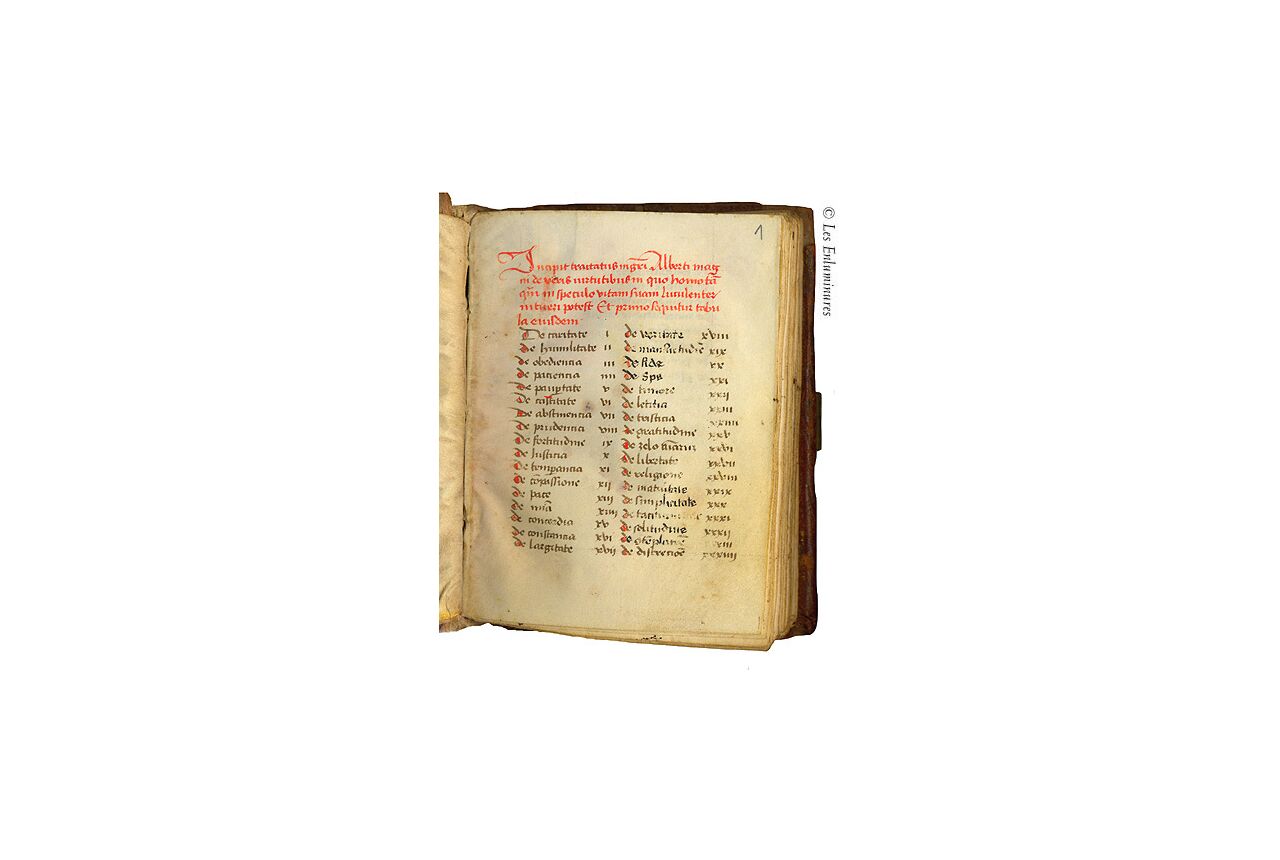 1
Incipit tractatus mgri Alberti mag
ni de veris virtutibus in quo homo tā
qm̄ in speculo vitam suam luculenter
intueri potest Et primo sequitur tabu
la eiusdem
De caritate i
de humilitate ii
de obediencia iii
de paciencia iiii
de paupertate v
de castitate vi
de abstinencia vii
de prudencia viii
de fortitudine ix
de Iusticia x
de temperancia xi
de cōpassione xii
de pace xiii
de mīa xiiii
de concordia xv
de constancia xvi
de largitate xvii
de veritate xviii
de mansuetudīe xix
de fide xx
de spe xxi
de timore xxii
de leticia xxiii
de tristicia xxiiii
de gratitudine xxv
de zelo aīarum xxvi
de libertate xxvii
de religione xxviii
de maturitate xxix
de simplicitate xxx
de xxxi
de solitudine xxxii
de cōtēplacōe xxxiii
de discrecōe xxxiiii
© Les Enluminures